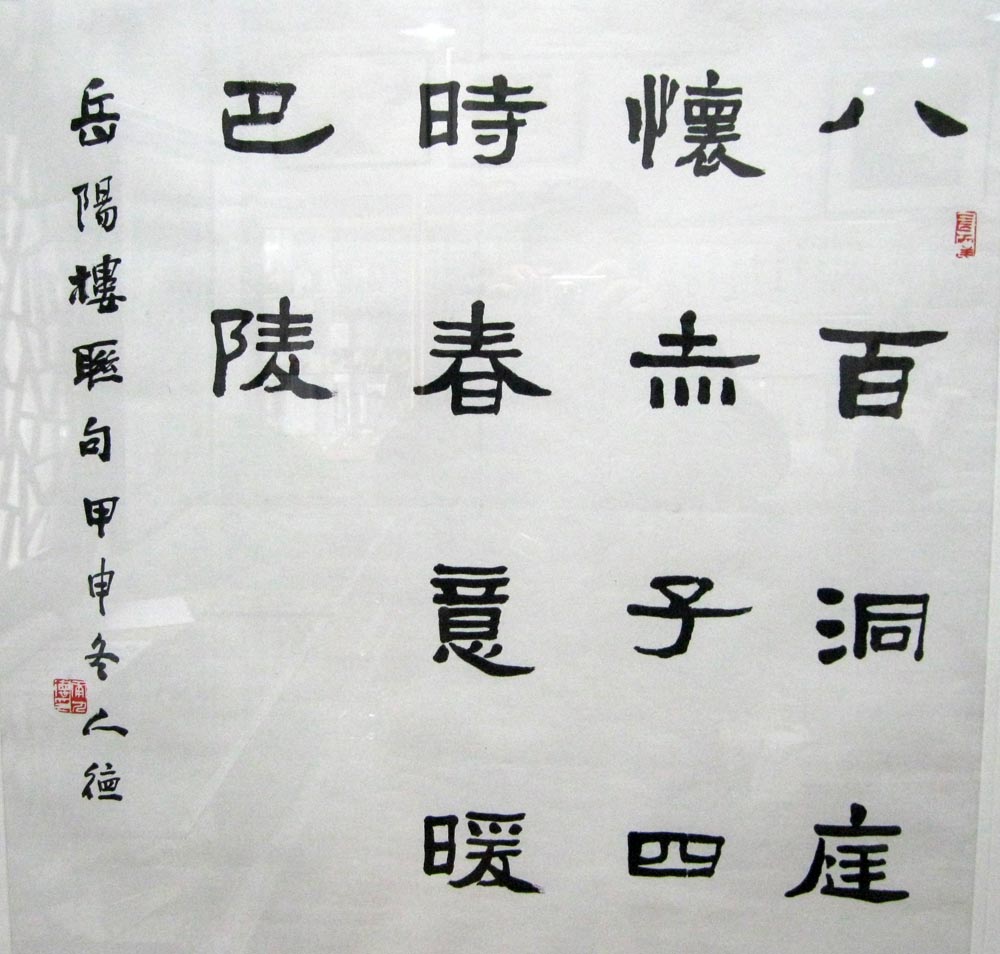 八百洞庭
懷赤子四
時春意暖
巴陵
岳陽樓聯句甲申冬人德